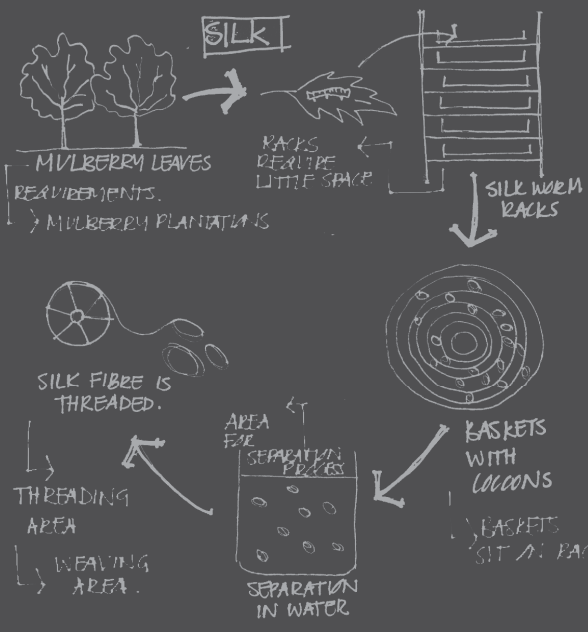 SILK
MULBERRY LEAVES
REQUIREMENTS.
MULBERRY PLANTATIONS
RACKS
REQUIRE
LITTLE SPACE
SILK WORM
RACKS
BASKETS
WITH
COCOONS
BASKETS
SIT IN RAC
AREA
FOR
SEPARATION
PROCESS
SEPARATION
IN WATER
SILK FIBRE IS
THREADED.
THREADING
AREA
WEAVING
AREA.